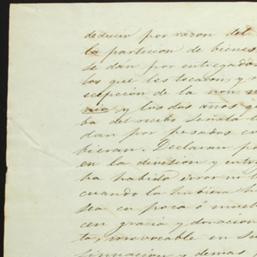 deducir por razon del
la particion de bienes
se dán por entregados
los que les tocaron, y
scepcion de la non
y los dos años
ba del recibo señala
dan por pasados
bieran. Declaran
en la division y
ha habido error ni
cuando lo hubiera
sea en poca ó mucha
cen gracia y donacion
ta, irrevocable en
sinuacion y demas